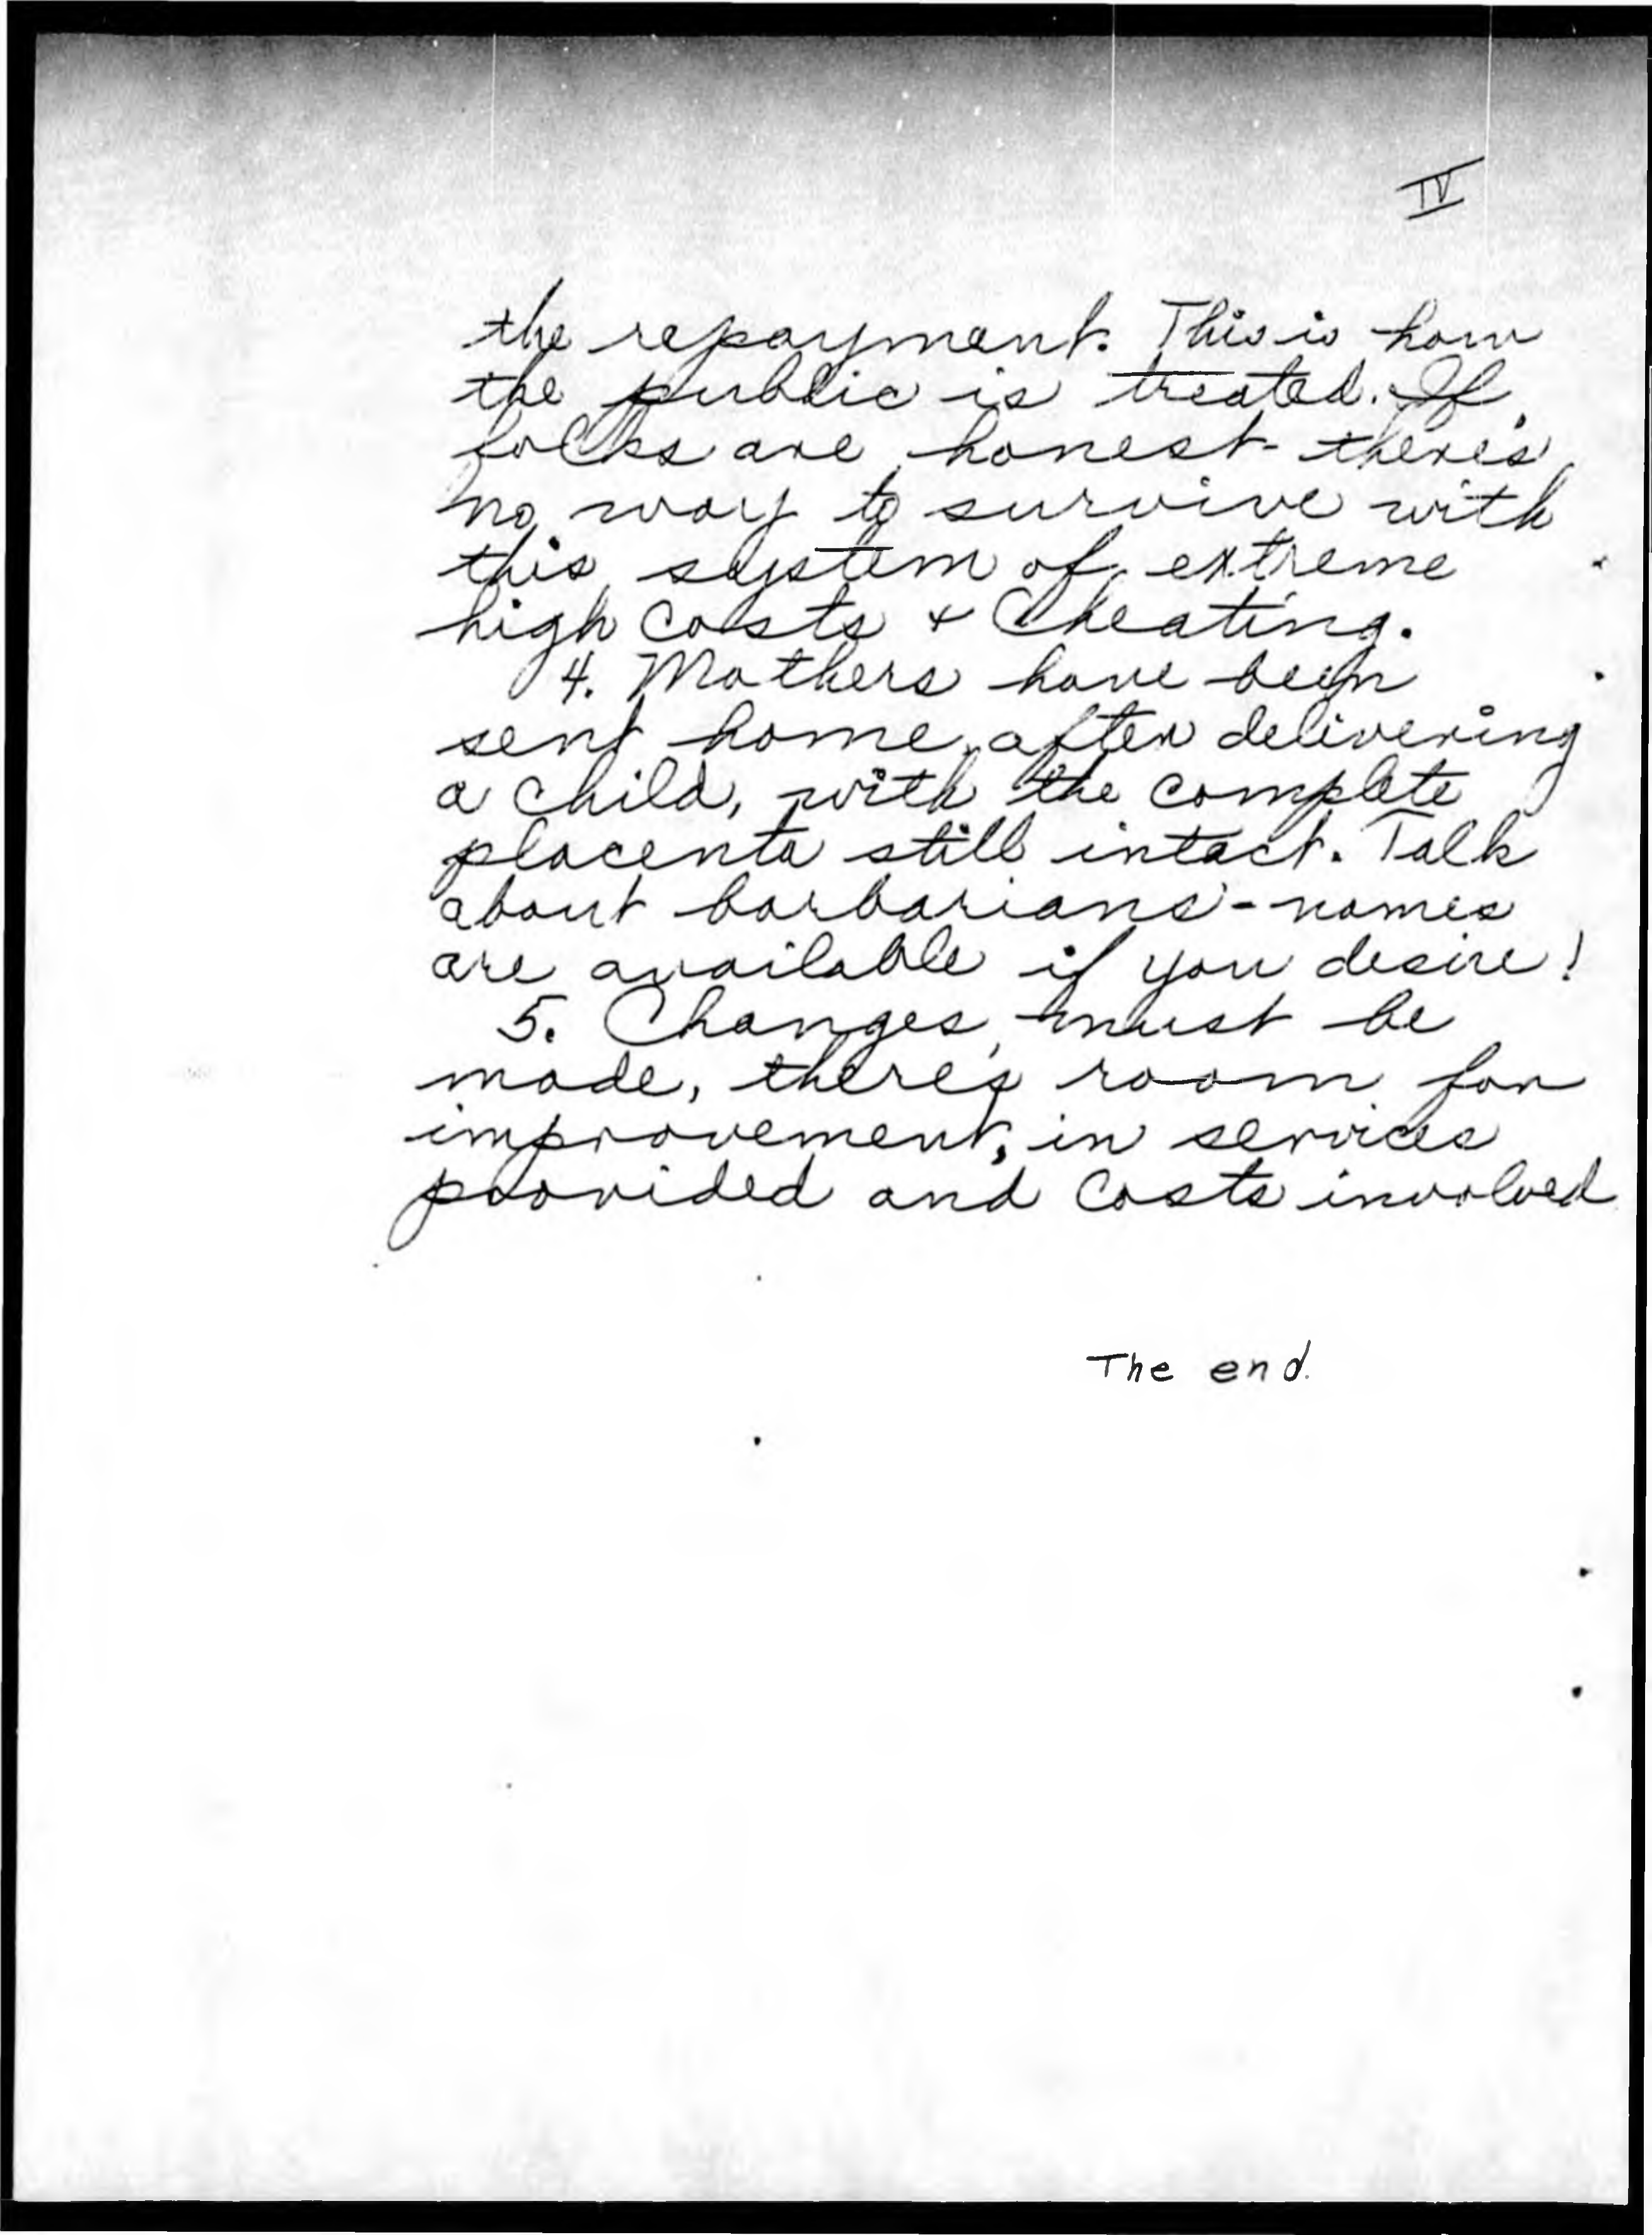 IV
the repayment. This is how
the public is treated. If
folks are honest - there's
no way to survive with
this system of extreme
high costs + Cheating.
4. Mothers have been
sent home, after delivering
a child, with the complete
placenta still intact. Talk
about barbarians - names
are available if you desire!
5. Changes must be
made, there's room for
improvement, in services
provided and costs involved
The end.